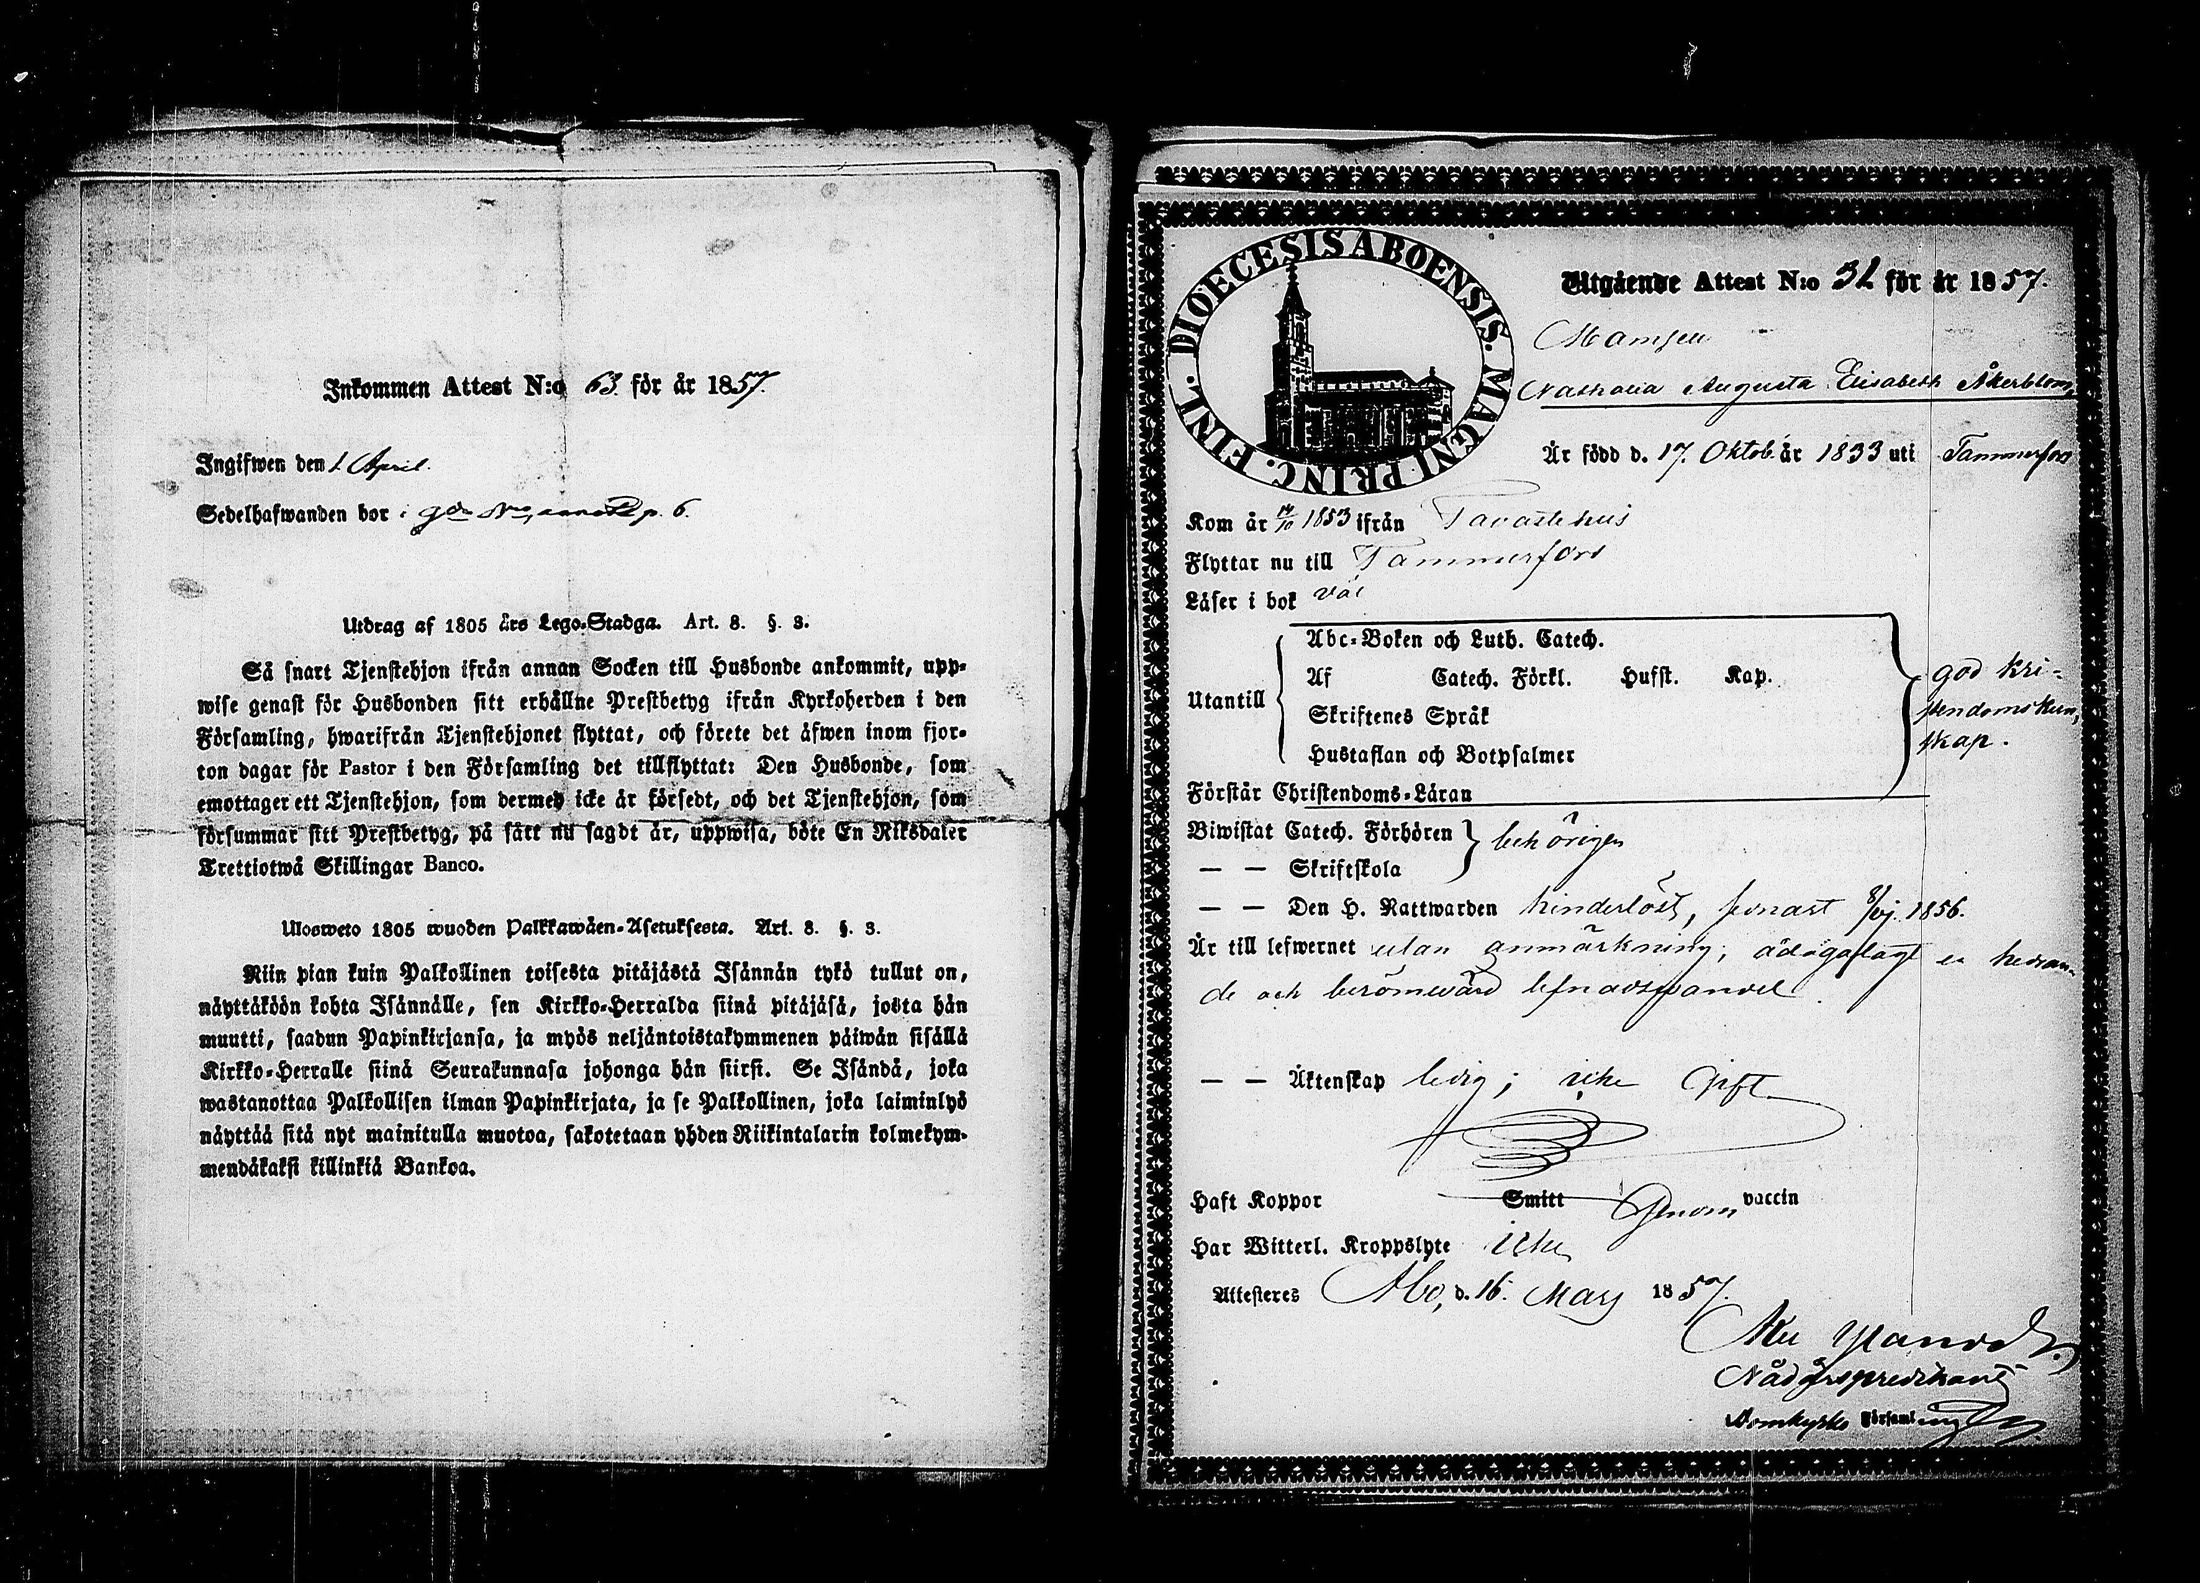 Inkommen Attest N:o 63. för år 1857.
Ingifwen den 1 April.
Sedelhafwanden bor i p. 6.
Utdrag af 1805 års Lego-Stadga. Art. 8. §. 3.
Så snart Tjenstehjon ifrån annan Socken till Husbonde ankommit, upp-
wise genast för Husbonden sitt erhållne Prestbetyg ifrån Kyrkoherden i den
Församling, hwarifrån Tjenstehjonet flyttat, och förete det äfwen inom fjor-
ton dagar för Pastor i den Församling det tillflyttat: Den Husbonde, som
emottager ett Tjenstehjon, som dermed icke är försedt, och det Tjenstehjon, som
försummar sitt Prestbetyg, på sätt nu sagdt är, uppwisa, böte En Riksdaler
Trettiotwå Skillingar Banco.
Ulosweto 1805 wuoden Palkkawäen-Asetuksesta. Art. 8. §. 3.
Niin pian kuin Palkollinen toisesta pitäjästä Isännän tykö tullut on,
näyttäköön kohta Isännälle, sen Kirkko-Herralda siinä pitäjäsä, josta hän
muutti, saadun Papinkirjansa, ja myös neljäntoistakymmenen päiwän sisällä
Kirkko-Herralle siinä Seurakunnasa johonga hän siirsi. Se Isändä, joka
wastanottaa Palkollisen ilman Papinkirjata, ja se Palkollinen, joka laiminlyö
näyttää sitä nyt mainitulla muotoa, sakotetaan yhden Riikintalarin kolmekym-
mendäkaksi killinkiä Bankoa.
DIOECESIS ABOENSIS. MAGNI PRINC. FINL.
Utgående Attest N:o 32 för år 1857.
Mamsell
Nathalia Augusta Elisabeth Åkerblom,
Är född d. 17. Oktob. år 1833 uti Tammerfors
Kom år 14/10 1853 ifrån Tavastehus
Flyttar nu till Tammerfors
Läser i bok väl
Utantill
Abc-Boken och Luth. Catech.
Af Catech. Förkl. Husst. Kap.
Skriftenes Språk
Hustaflan och Botpsalmer
god kri-
stendomskun,
skap.
Förstår Christendoms-Läran
Biwistat Catech. Förhören
— — Skriftskola
behörigen
— — Den H. Nattwarden hinderlöst, sednast 1856.
Är till lefwernet utan anmärkning, ådagalagt en hedran-
de och berömvärd lefnadsvandel.
— — Äktenskap ledig; icke gift.
Haft Koppor Smitt Genom vaccin
Har Witterl. Kroppslyte icke
Attesteres Åbo, d. 16. Mars 1857.
Nådårspredikant
Domkyrko Församling